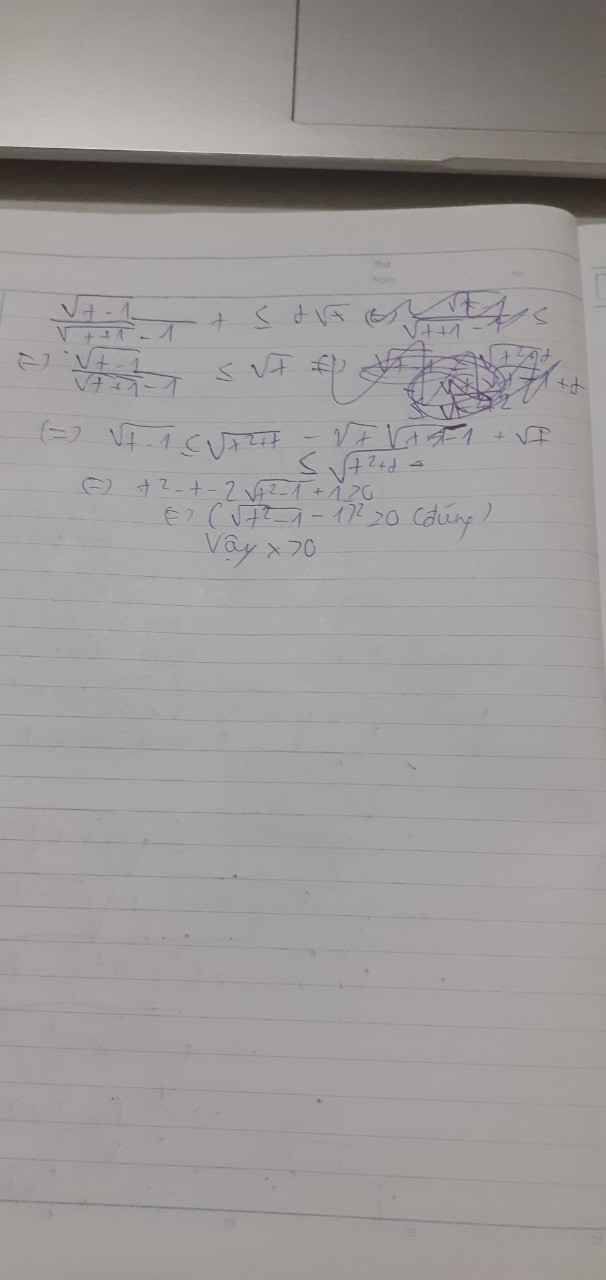 √t-1 / √t+1 - 1 t ≤ t√t (=)
(=) √t-1 / √t+1 - 1 ≤ √t
(=) √t-1 ≤ √t²+t - √t √t-1 + √t
≤ √t²+t
(=) t² - t - 2√t²-1 + 1 ≥ 0
(=) (√t²-1 - 1)² ≥ 0 (đúng)
Vậy x > 0